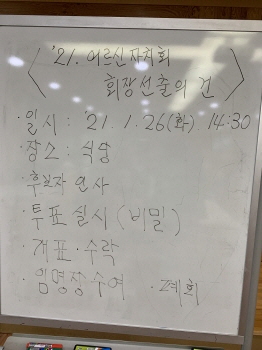 〈 '21. 어르신자치회
회장선출의 건 〉
· 일시 : '21. 1. 26(화) 14:30
· 장소 : 식당
· 후보자 인사
· 투표 실시 (비밀)
· 개표 · 수락
· 임명장 수여 · 폐회